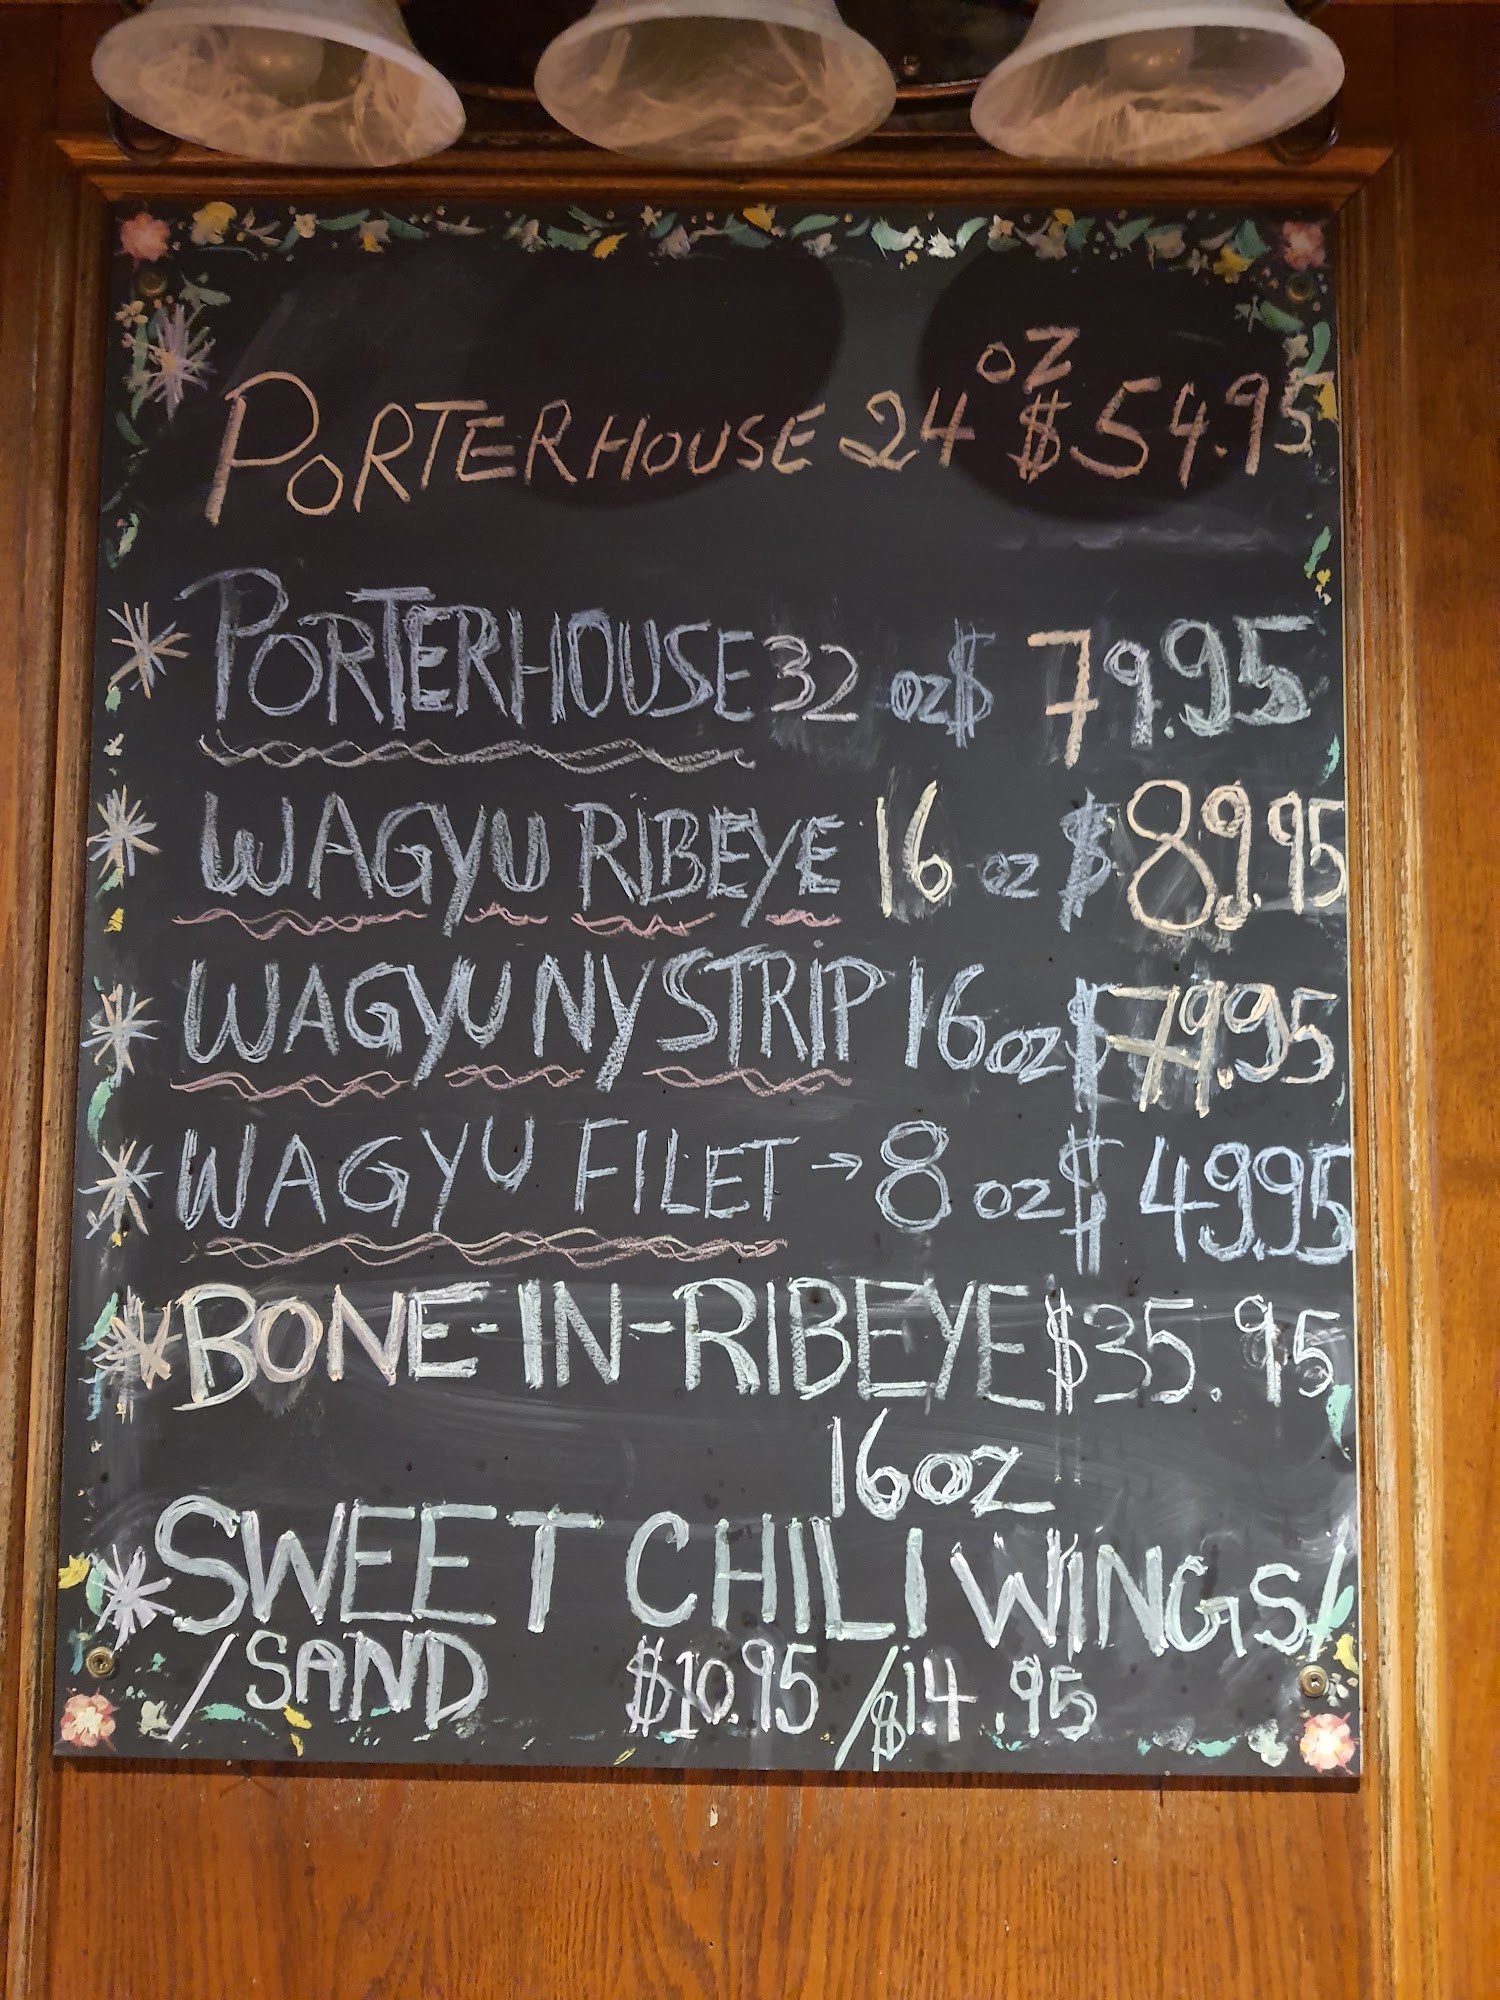 PORTERHOUSE 24 OZ $54.95
PORTERHOUSE 32 OZ $ 79.95
WAGYU RIBEYE 16 OZ $ 89.95
WAGYU NY STRIP 16 OZ $79.95
WAGYU FILET → 8 OZ $ 49.95
BONE-IN-RIBEYE $35.95
16 OZ
SWEET CHILI WINGS/
/SAND $10.95 /$14.95